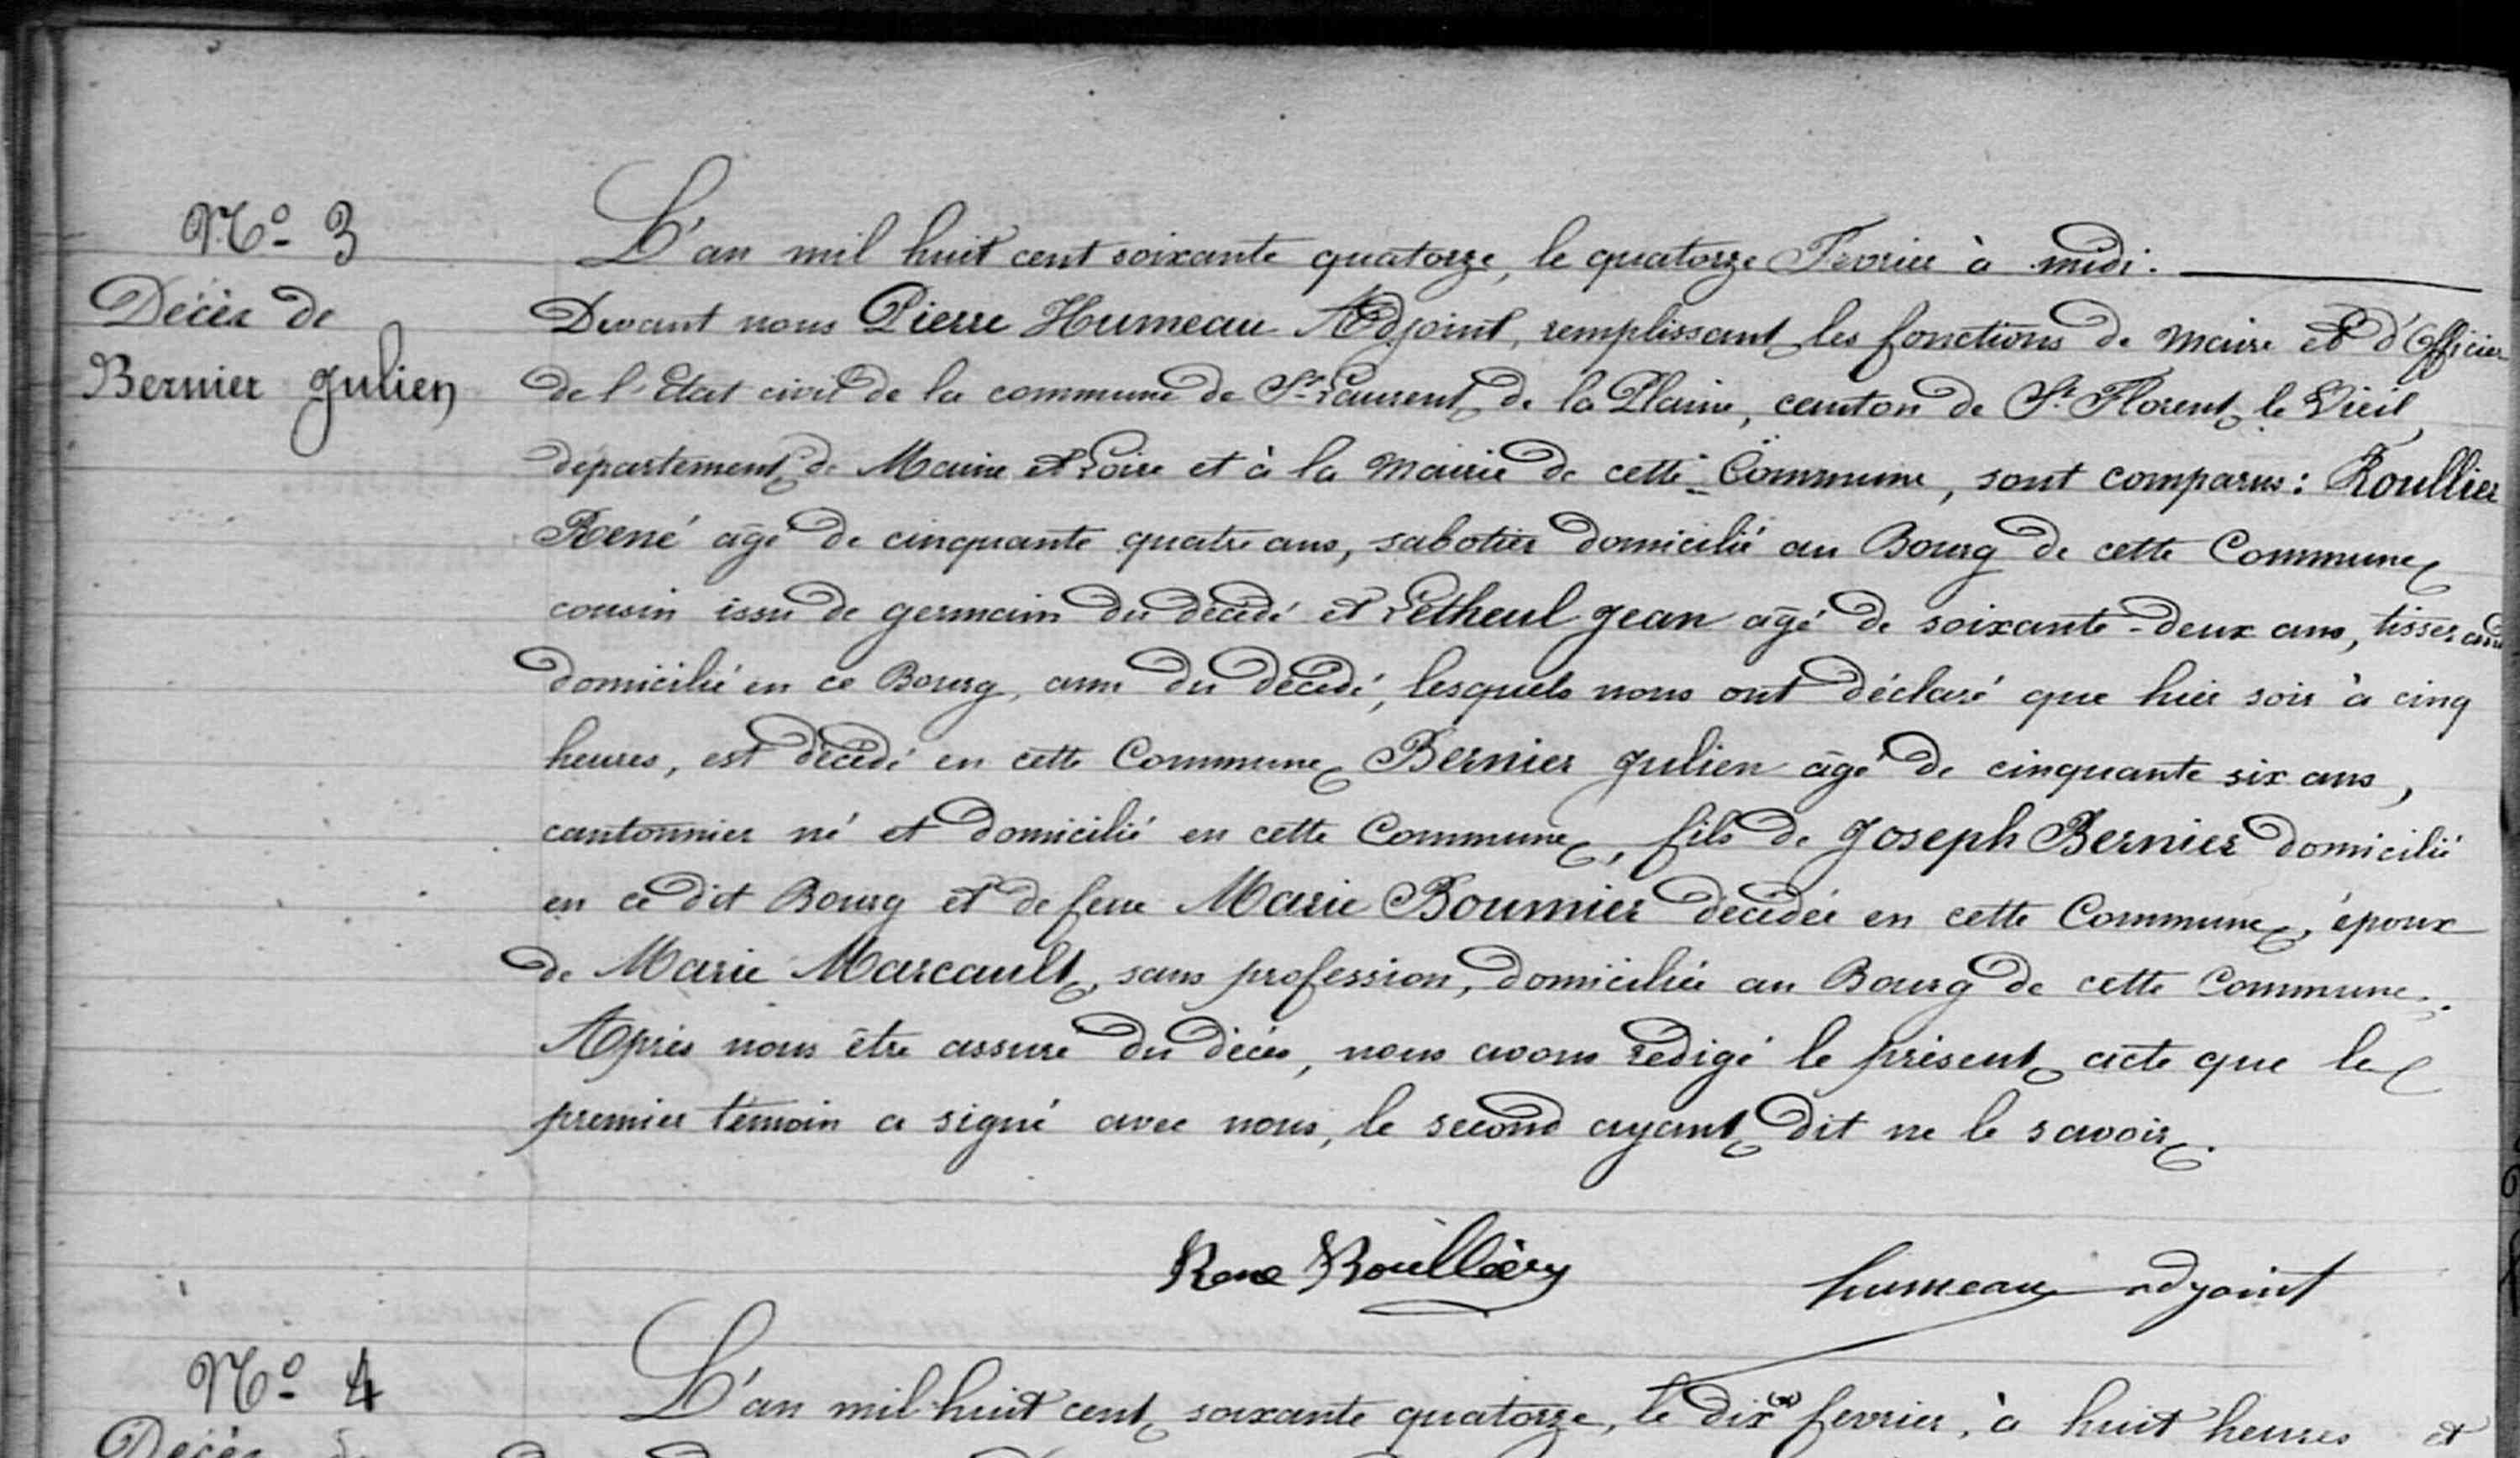 N° 3
Décès de
Bernier Julien
L'an mil huit cent soixante quatorze, le quatorze Fevrier à midi.
Devant nous Pierre Humeau Adjoint, remplissant les fonctions de Maire et d'Officier
de l'Etat civil de la commune de St Laurent de la Plaine, canton de St Florent le Vieil,
département de Maine et Loire et à la Mairie de cette Commune, sont comparus : Roullier
René âgé de cinquante quatre ans, sabotier domicilié au Bourg de cette Commune
cousin issu de germain du décédé et Letheul Jean âgé de soixante-deux ans, tisserand
domicilié en ce Bourg, ami du décédé, lesquels nous ont déclaré que hier soir à cinq
heures, est décédé en cette Commune Bernier Julien âgé de cinquante six ans,
cantonnier né et domicilié en cette Commune, fils de Joseph Bernier domicilié
en ce dit Bourg et de feue Marie Boumier décédée en cette Commune, époux
de Marie Marcault, sans profession, domiciliée au Bourg de cette Commune.
Après nous être assuré du décès, nous avons rédigé le présent acte que le
premier témoin a signé avec nous, le second ayant dit ne le savoir.
René Roullier humeau adjoint
N° 4
L'an mil huit cent soixante quatorze, le dix fevrier, à huit heures et
Décès de